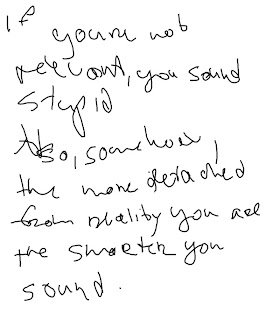 If
you're not
relevant, you sound
stupid
Also, somehow,
the more detached
from reality you are
the smarter you
sound.